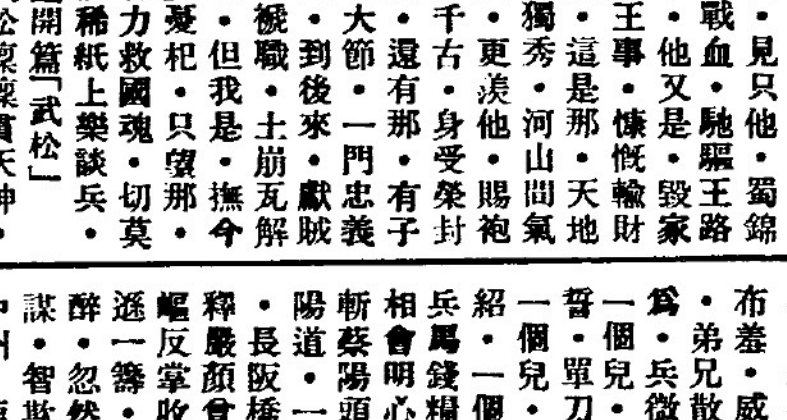 ・見只他・蜀錦
戰血・馳驅王路
・他又是・毀家
王事・慷慨輸財
・這是那・天地
獨秀・河山間氣
・更羨他・賜袍
千古・身受榮封
・還有那・有子
大節・一門忠義
・到後來・獻賊
褫職・土崩瓦解
・但我是・撫今
憂杞・只望那・
力救國魂・切莫
稀紙上樂談兵・
開篇「武松」
松凜凜貫天神・
布羞・威
・弟兄散
爲・兵微
一個兒・
誓・單刀
一個兒・
紹・一個
兵馬錢糧
相會明心
斬蔡陽頭
陽道・一
・長阪橋
釋嚴顏會
嶇反掌收
遜一籌・
醉・忽然
謀・智欺